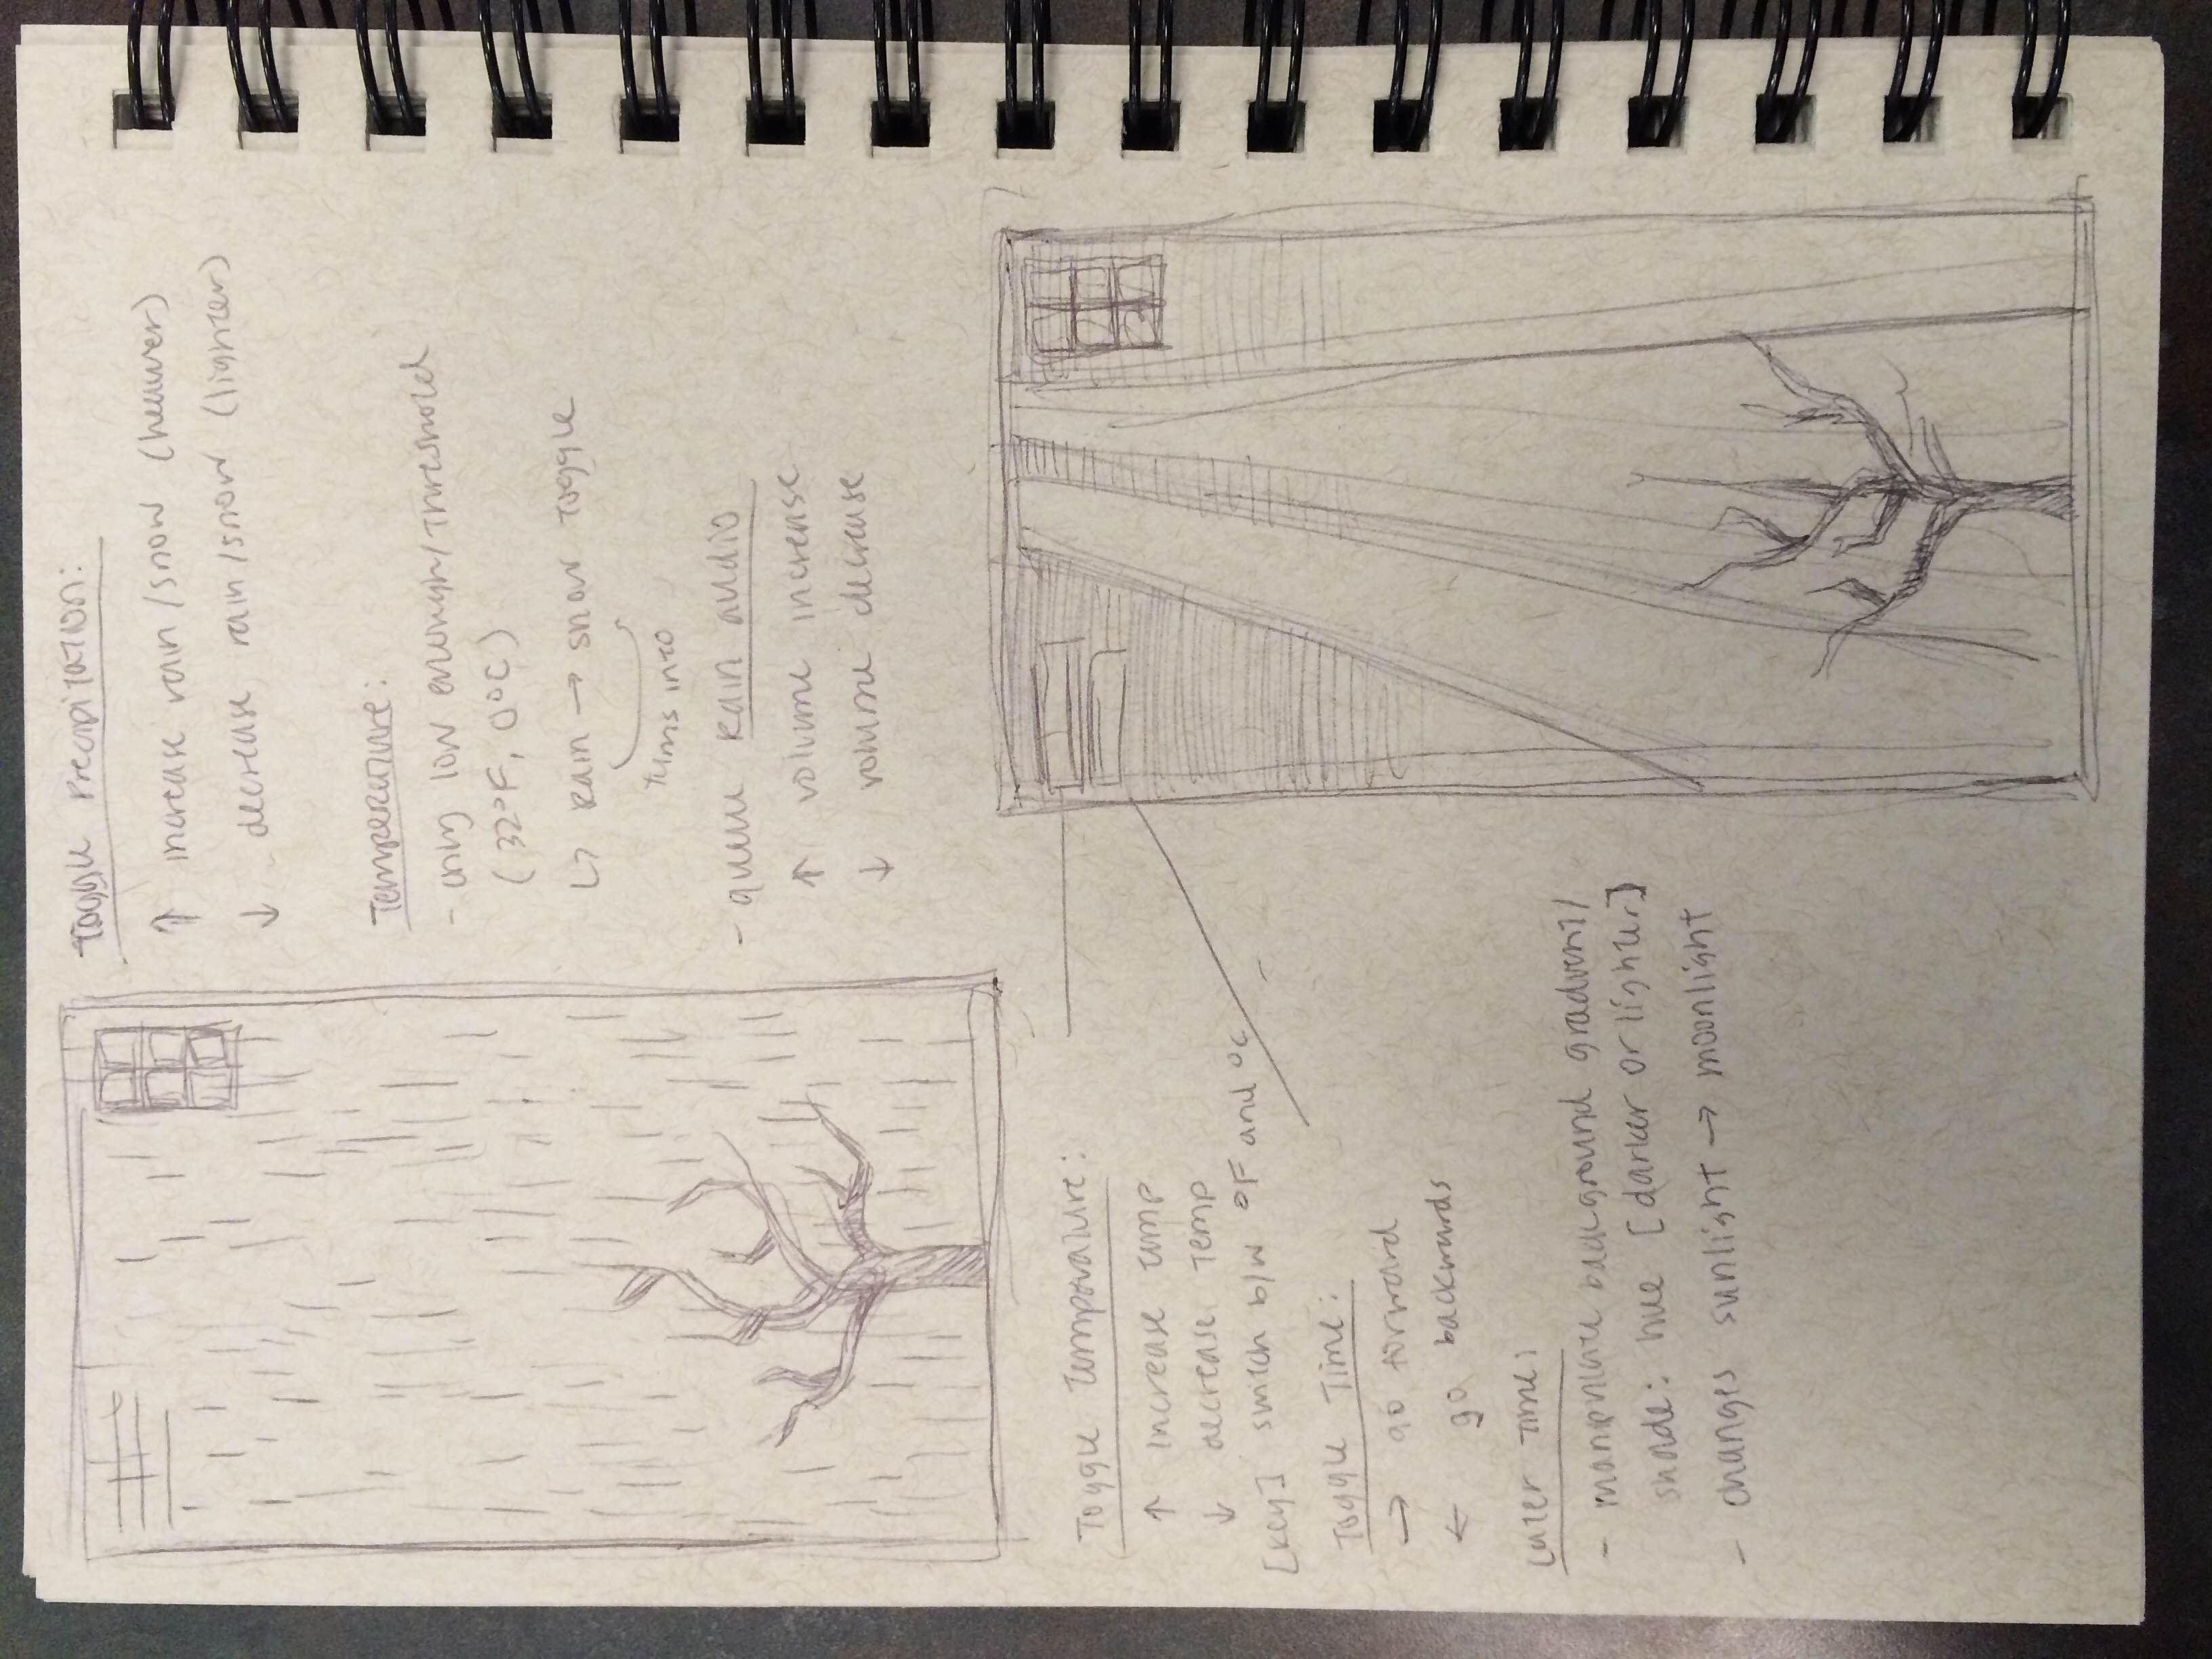 Toggle Precipitation:
↑ increase rain/snow (heavier)
↓ decrease rain/snow (lighter)
Temperature:
- only low enough/threshold
(32°F, 0°C)
↳ Rain → snow toggle
turns into
- queue Rain audio
↑ volume increase
↓ volume decrease
Toggle Temperature:
↑ increase temp
↓ decrease temp
[key] switch b/w °F and °C
Toggle Time:
→ go forward
← go backwards
Later Time:
- manipulate background gradient/
shade: hue [darker or lighter]
- changes sunlight → moonlight